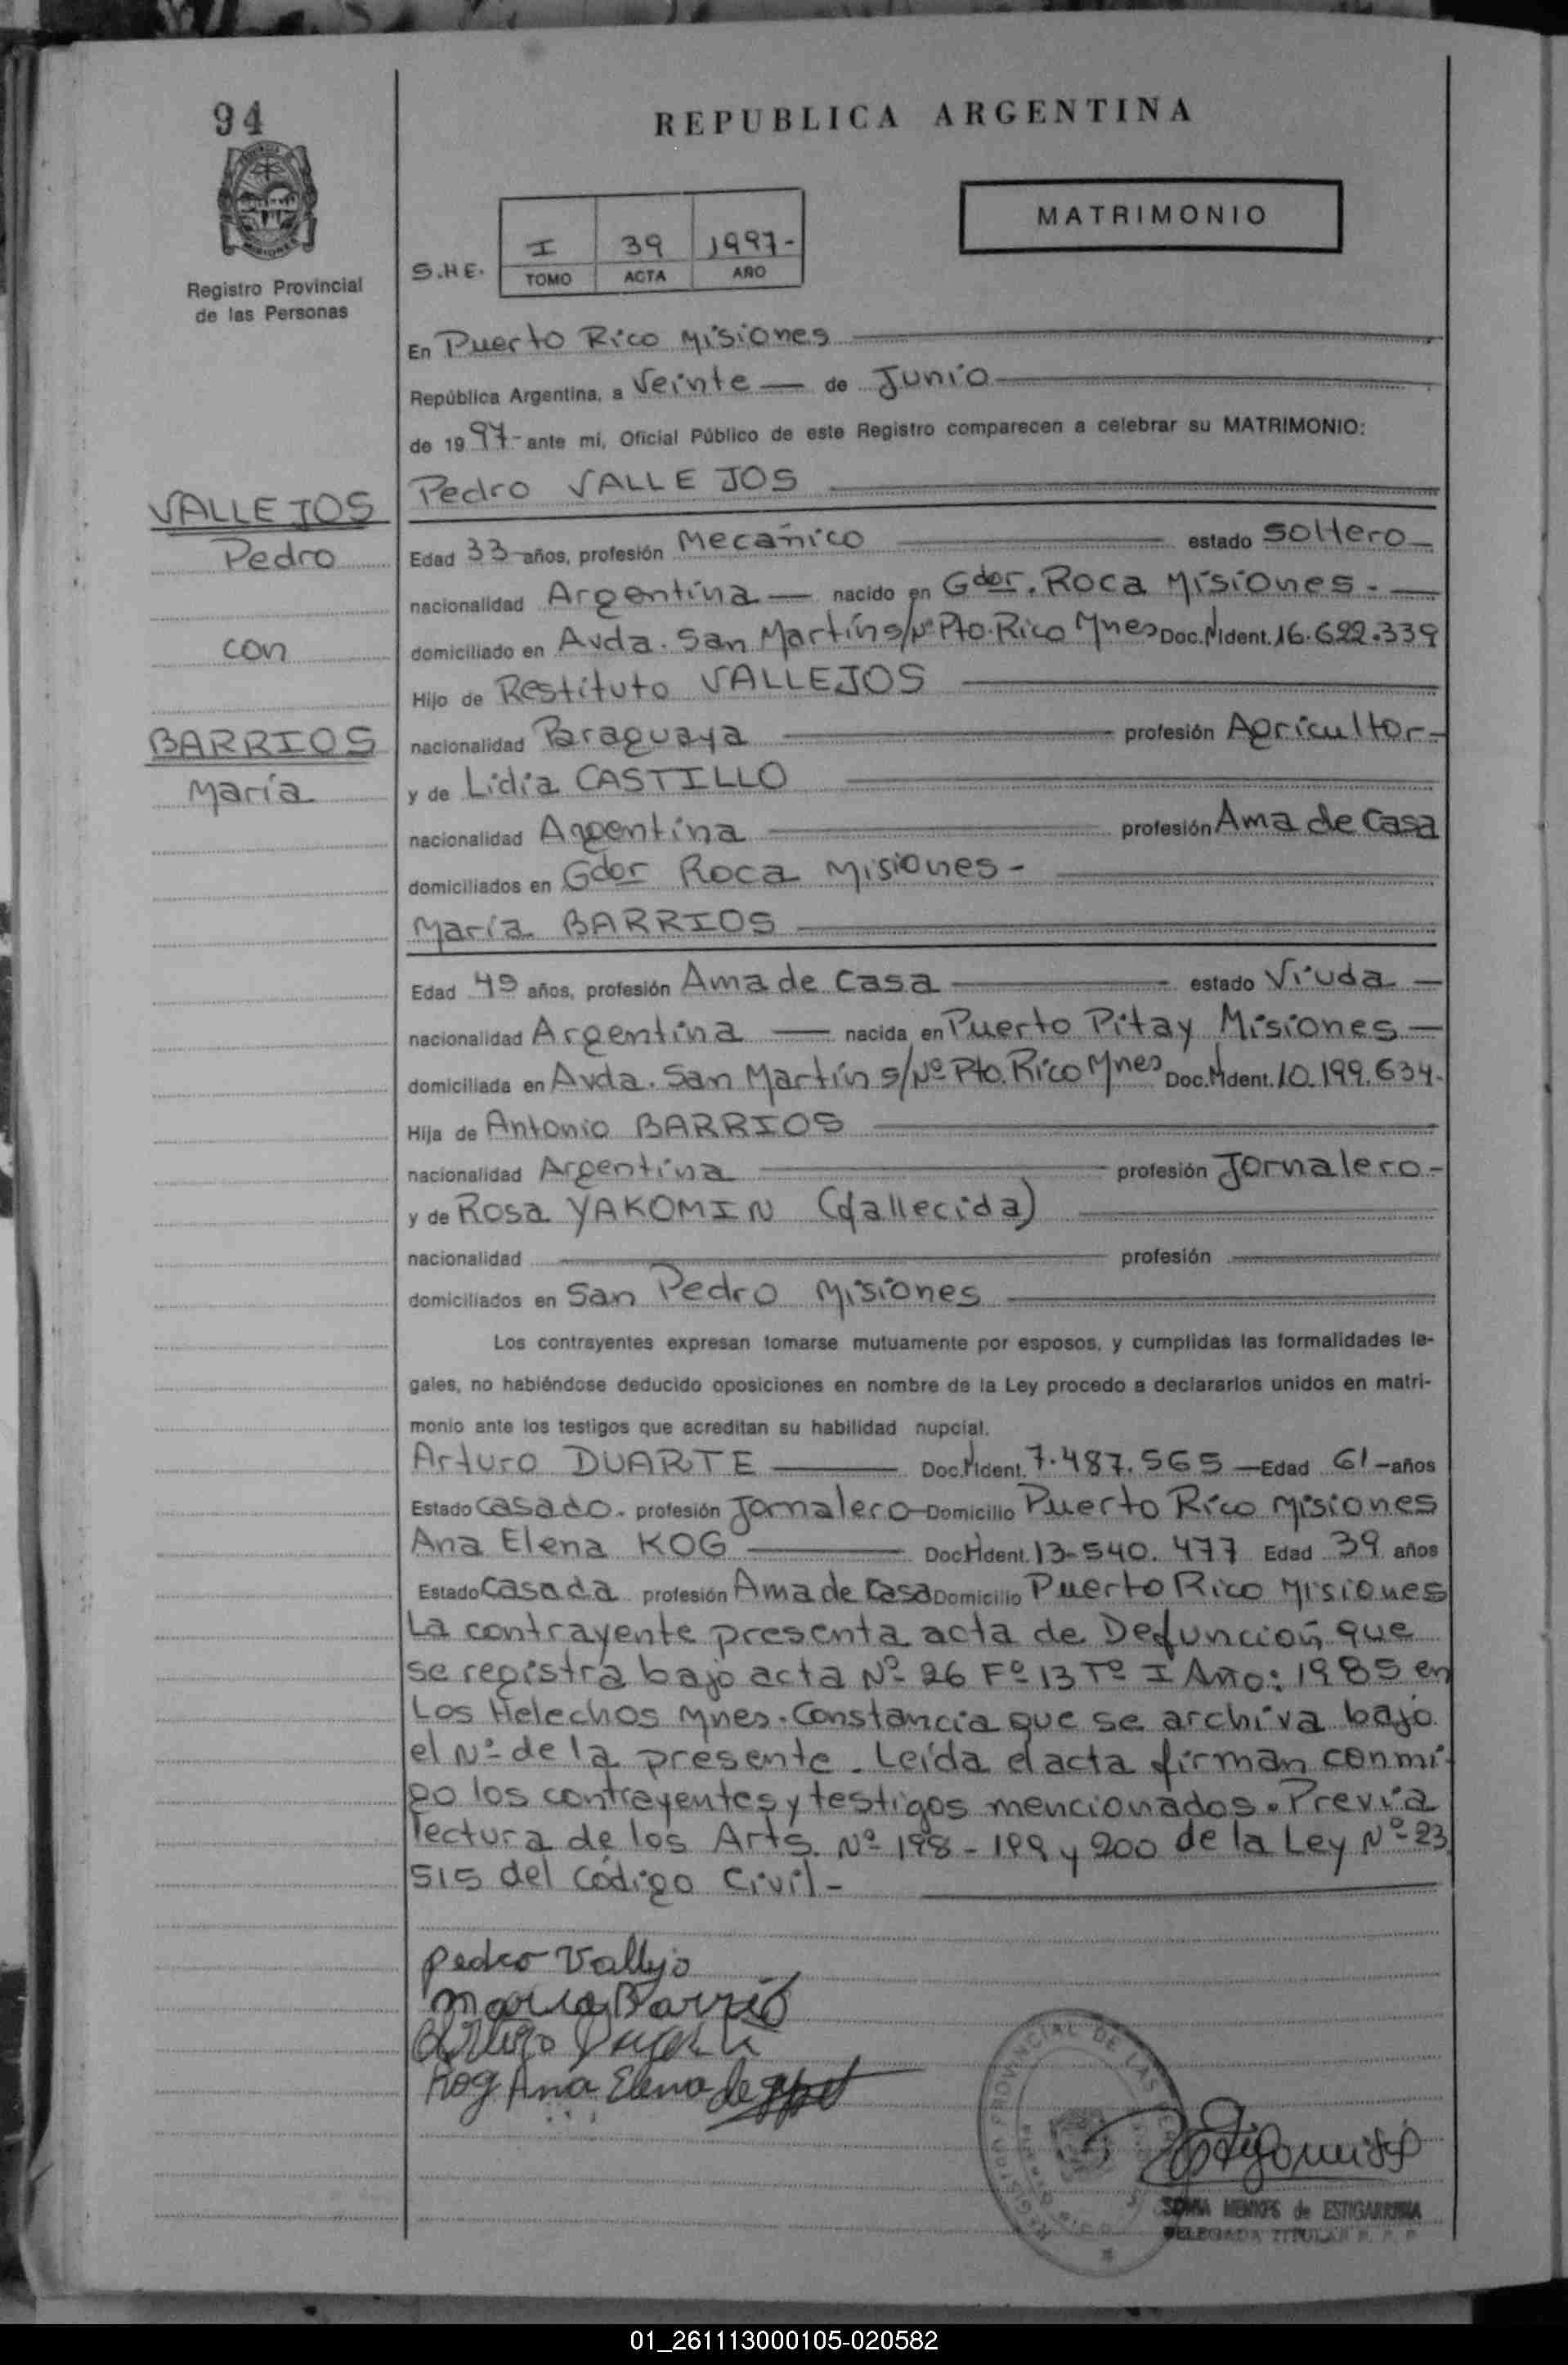 94
REPUBLICA ARGENTINA
MATRIMONIO
Registro Provincial
de las Personas
S.H.E.
I 39 1997-
TOMO ACTA AÑO
En Puerto Rico Misiones
República Argentina, a Veinte de Junio
de 1997- ante mi, Oficial Público de este Registro comparecen a celebrar su MATRIMONIO:
VALLEJOS
Pedro
con
BARRIOS
María
Pedro VALLEJOS
Edad 33 años, profesión Mecánico estado Soltero
nacionalidad Argentina nacido en Gdor. Roca Misiones.
domiciliado en Avda. San Martín s/Nº Pto. Rico Mnes Doc. N Ident. 16.622.339
Hijo de Restituto VALLEJOS
nacionalidad Paraguaya profesión Agricultor
y de Lidia CASTILLO
nacionalidad Argentina profesión Ama de Casa
domiciliados en Gdor Roca Misiones-
María BARRIOS
Edad 49 años, profesión Ama de Casa estado Viuda
nacionalidad Argentina nacida en Puerto Pitay Misiones
domiciliada en Avda. San Martín s/Nº Pto. Rico Mnes Doc. N Ident. 10.199.634.
Hija de Antonio BARRIOS
nacionalidad Argentina profesión Jornalero-
y de Rosa YAKOMIN (fallecida)
nacionalidad profesión
domiciliados en San Pedro Misiones
Los contrayentes expresan tomarse mutuamente por esposos, y cumplidas las formalidades le-
gales, no habiéndose deducido oposiciones en nombre de la Ley procedo a declararlos unidos en matri-
monio ante los testigos que acreditan su habilidad nupcial.
Arturo DUARTE Doc. N Ident. 7.487.565 Edad 61 años
Estado Casado. profesión Jornalero Domicilio Puerto Rico Misiones
Ana Elena KOG Doc. N Ident. 13.540.477 Edad 39 años
Estado Casada profesión Ama de Casa Domicilio Puerto Rico Misiones
La contrayente presenta acta de Defunción, que
se registra bajo acta Nº 26 Fº 13 Tº I Año: 1985 en
Los Helechos Mnes. Constancia que se archiva bajo
el Nº de la presente. Leída el acta firman conmi-
go los contrayentes y testigos mencionados. Previa
lectura de los Arts. Nº 198 - 199 y 200 de la Ley Nº 23
515 del Código Civil-
Pedro Vallejo
Maria Barrios
Kog Ana Elena de
REGISTRO PROVINCIAL DE LAS
SONIA de ESTIGARRIBIA
DELEGADA TITULAR R. P. P.
01_261113000105-020582